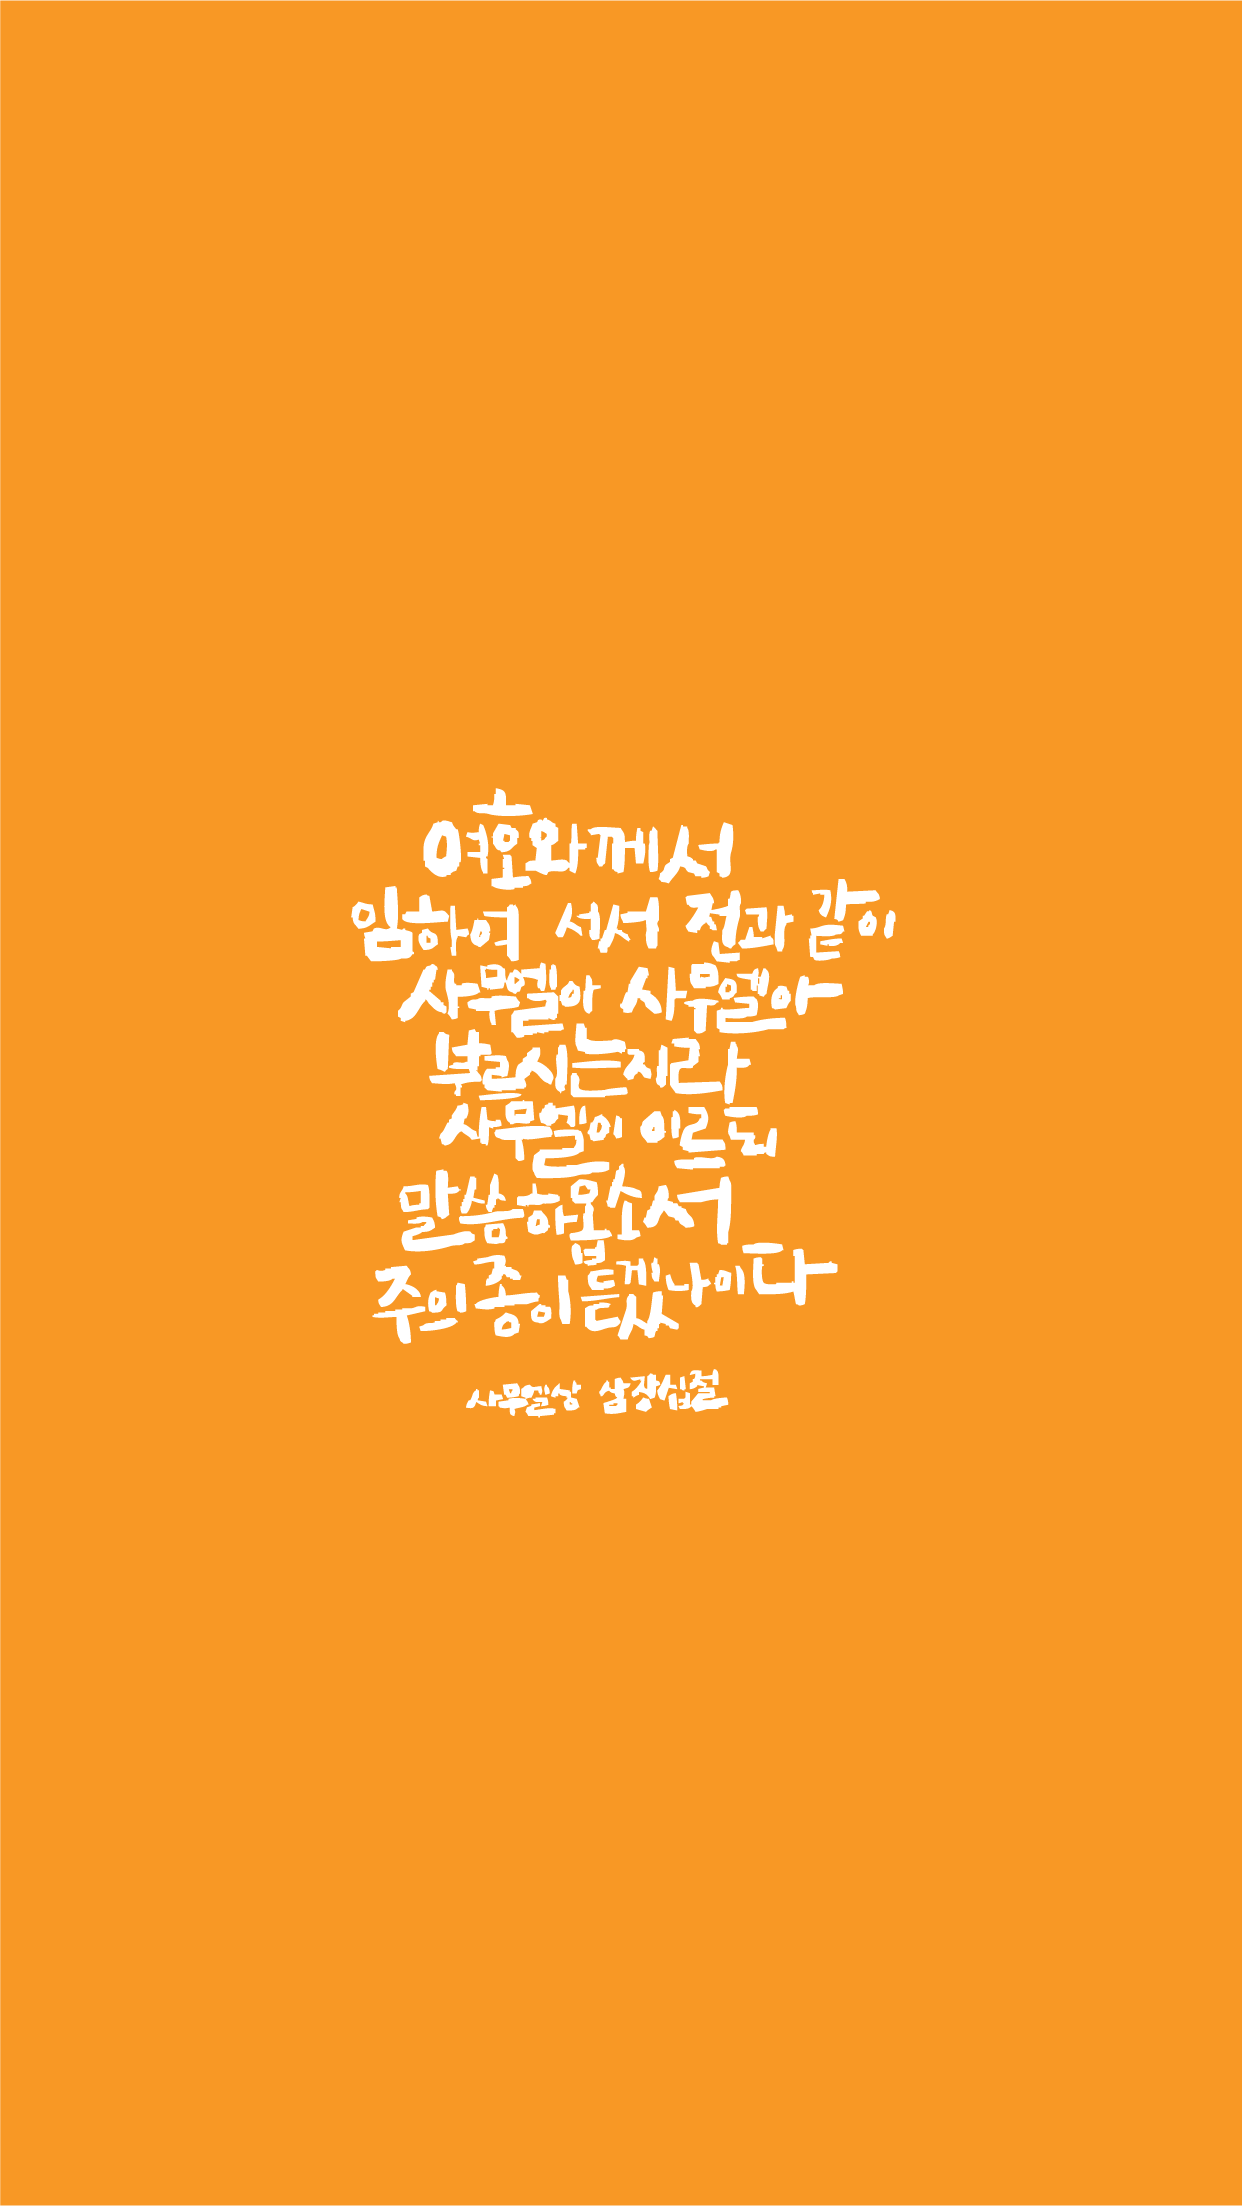 여호와께서
임하여 서서 전과 같이
사무엘아 사무엘아
부르시는지라
사무엘이 이르되
말씀하옵소서
주의 종이 듣겠나이다
사무엘상 삼장십절